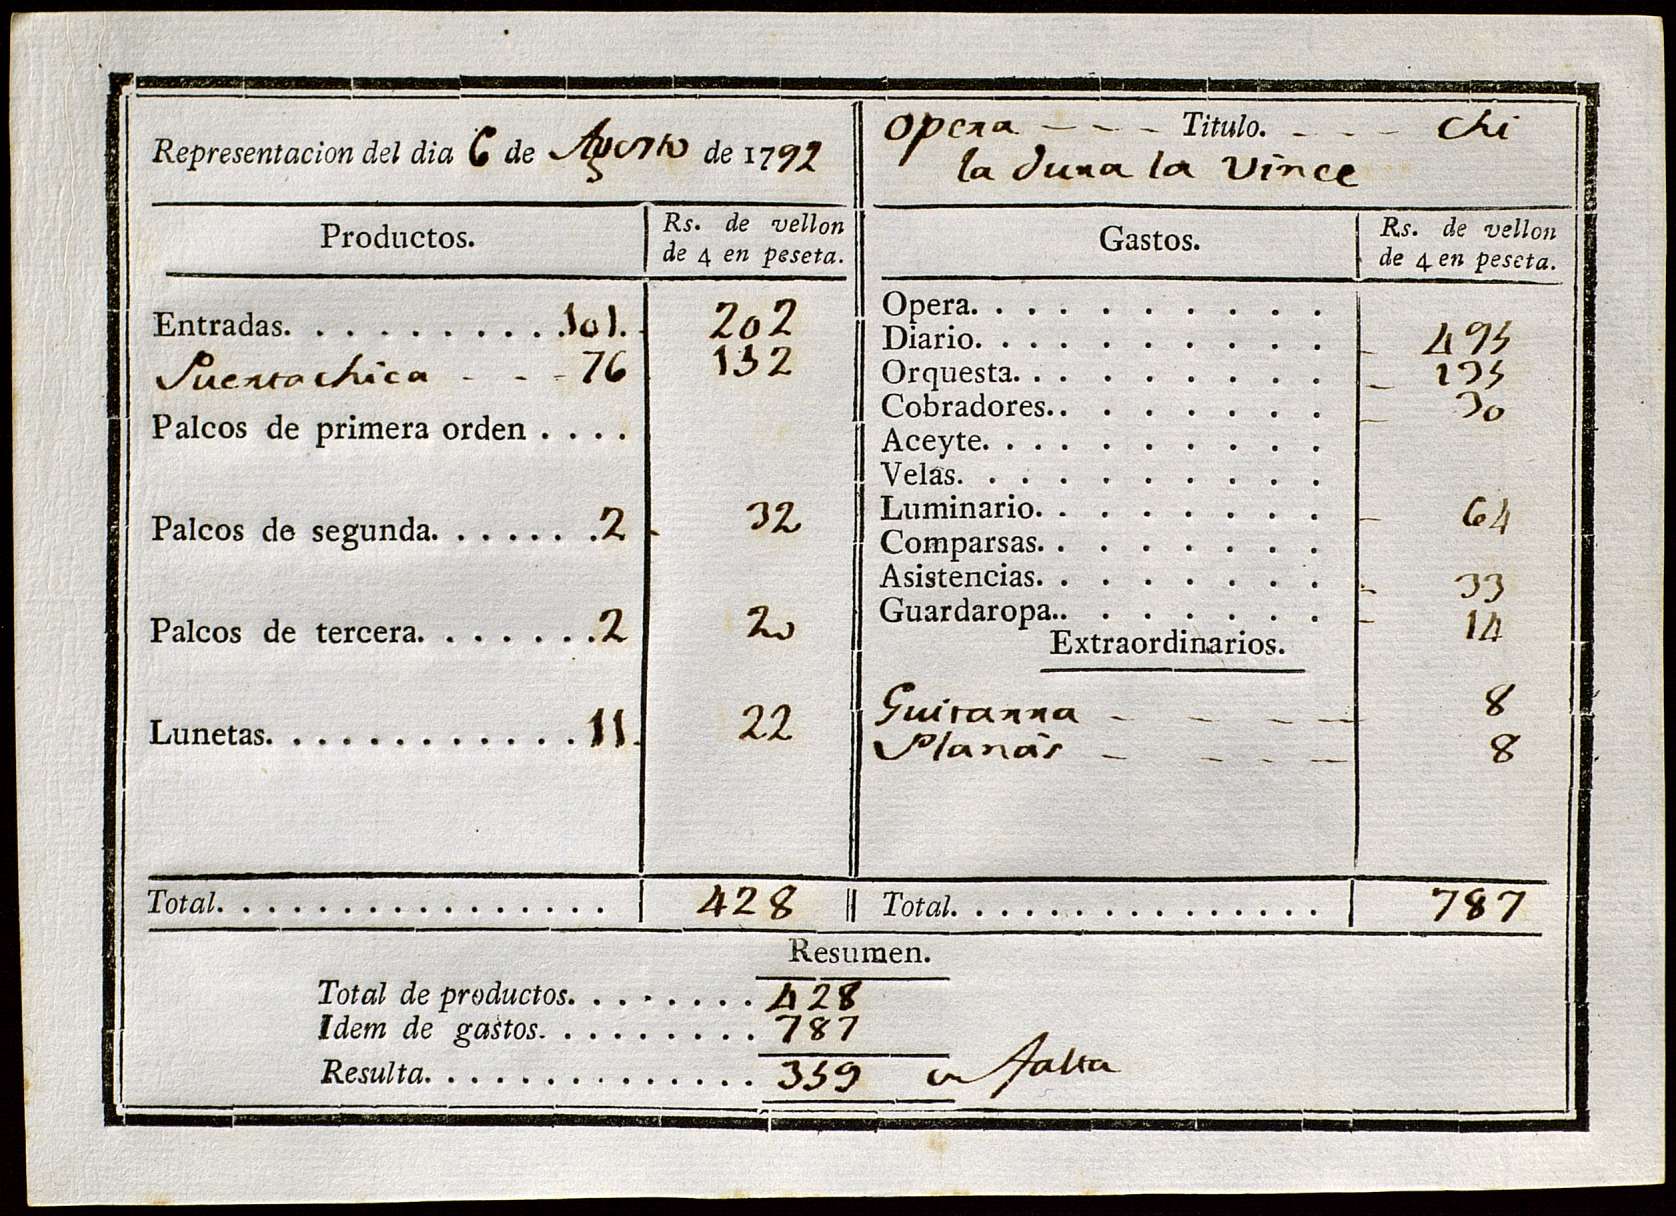 Representacion del dia 6 de Agosto de 1792
Productos. Rs. de vellon de 4 en peseta.
Entradas. . . . . . . . . . 101. 202
Puerta chica - - - 76 152
Palcos de primera orden . . . .
Palcos de segunda. . . . . . . 2 - 32
Palcos de tercera. . . . . . . 2 20
Lunetas. . . . . . . . . . . . . 11. 22
Total. . . . . . . . . . . . . . . . 428
Opera - - - - Titulo. - - - - Chi
la dura la vince
Gastos. Rs. de vellon de 4 en peseta.
Opera. . . . . . . . . .
Diario. . . . . . . . . . - 495
Orquesta. . . . . . . . . - 135
Cobradores. . . . . . . . - 30
Aceyte. . . . . . . . . .
Velas. . . . . . . . . .
Luminario. . . . . . . . - 64
Comparsas. . . . . . . .
Asistencias. . . . . . . . - 33
Guardaropa. . . . . . . . - 14
Extraordinarios.
Guitarra - - - - - 8
Planás - - - - - 8
Total. . . . . . . . . . . . . . . . 787
Resumen.
Total de productos. . . . . . . . 428
Idem de gastos. . . . . . . . . 787
Resulta. . . . . . . . . . . . . . 359 en falta